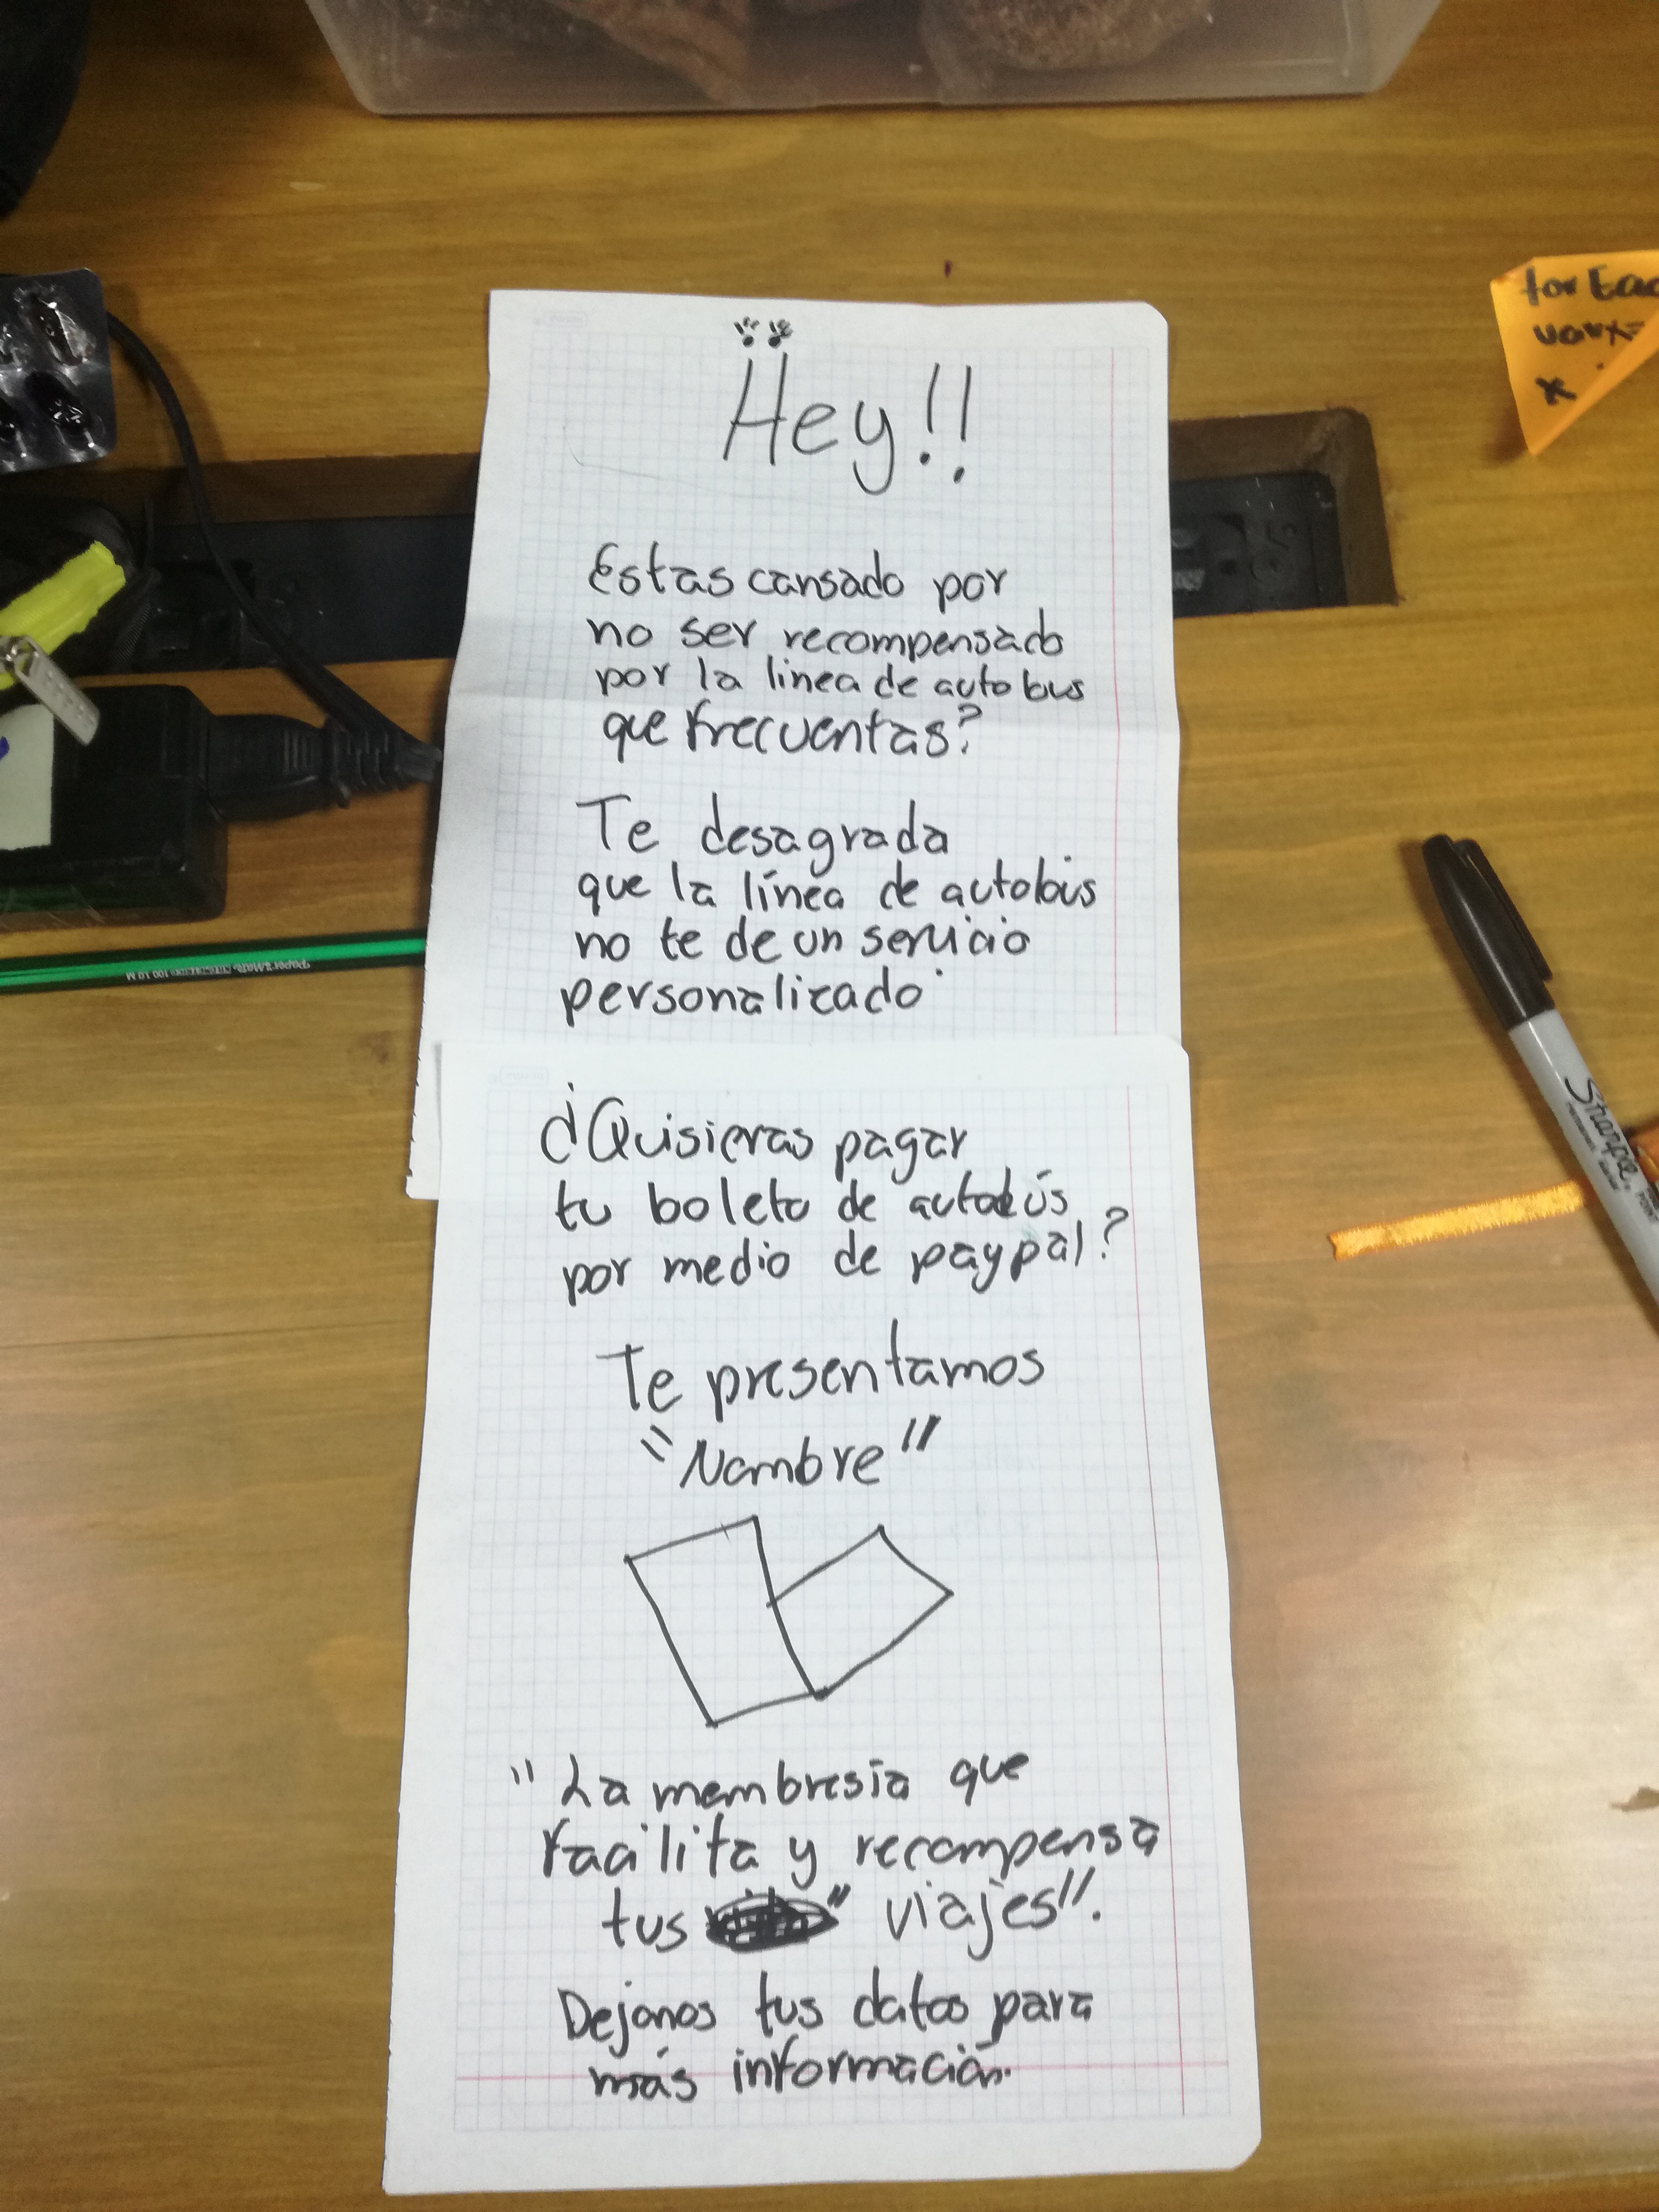 Hey!!
Estas cansado por
no ser recompensado
por la linea de autobus
que frecuentas?
Te desagrada
que la línea de autobús
no te de un servicio
personalizado
¿Quisieras pagar
tu boleto de autobús
por medio de paypal?
Te presentamos
"Nombre"
"La membresía que
facilita y recompensa
tus " viajes".
Dejanos tus datos para
más información.
for Eac
var x=
x
Sharpie